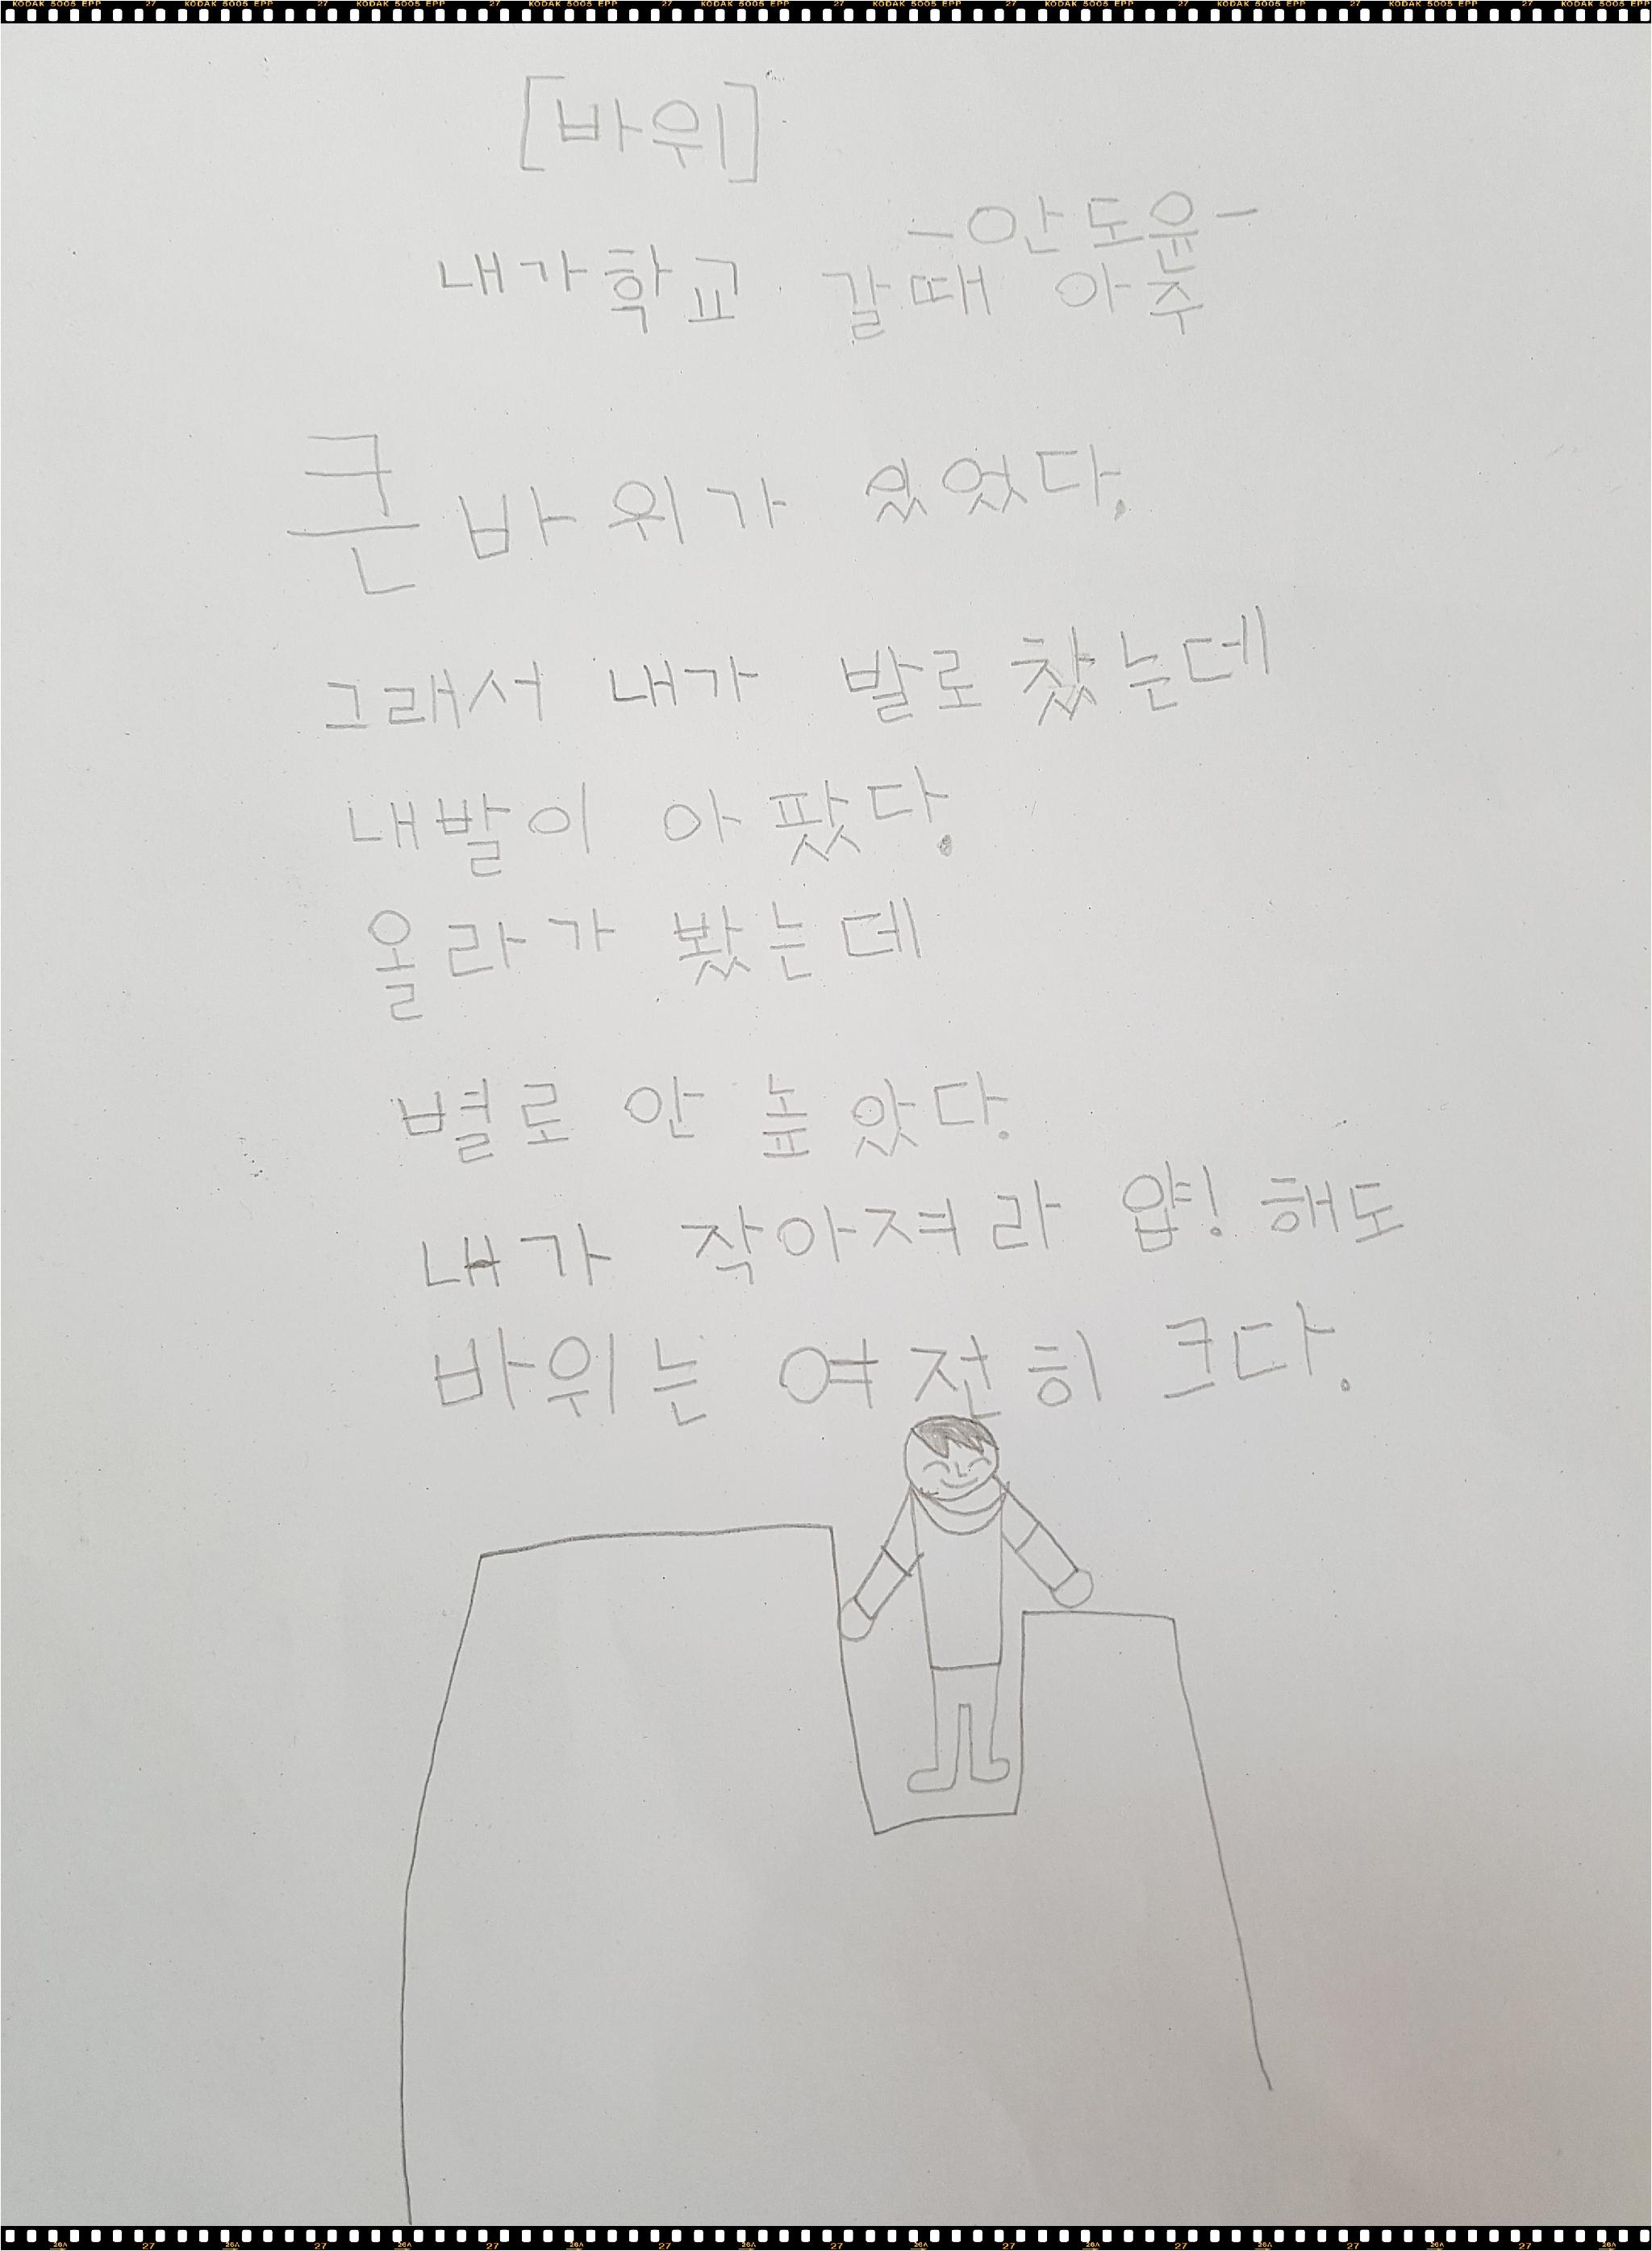 KODAK 5005 EPP 27 KODAK 5005 EPP 27 KODAK 5005 EPP 27 KODAK 5005 EPP 27 KODAK 5005 EPP 27 KODAK 5005 EPP 27 KODAK 5005 EPP 27 KODAK 5005 EPP 27 KODAK 5005 EPP 27 KODAK 5005 EPP
[바위]
-안도윤-
내가학교 갈때 아주
큰 바위가 있었다.
그래서 내가 발로 찼는데
내발이 아팠다.
올라가 봤는데
별로 안 높았다.
내가 작아져라 얍! 해도
바위는 여전히 크다.
26A 27 26A 27 26A 27 26A 27 26A 27 26A 27 26A 27 26A 27 26A 27 26A